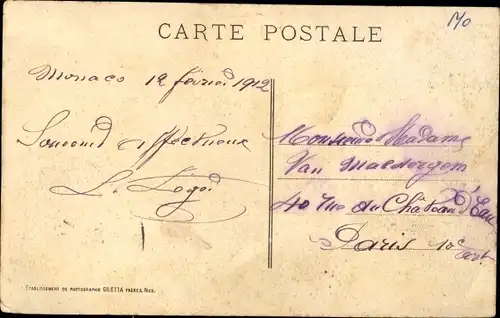 CARTE POSTALE
Monaco 12 février 1912
Souvenir affectueux
Monsieur Madame
Van
40 rue du Château d'Eau
Paris 10e
art
ETABLISSEMENT DE PHOTOGRAPHIE GILETTA FRÈRES, NICE.